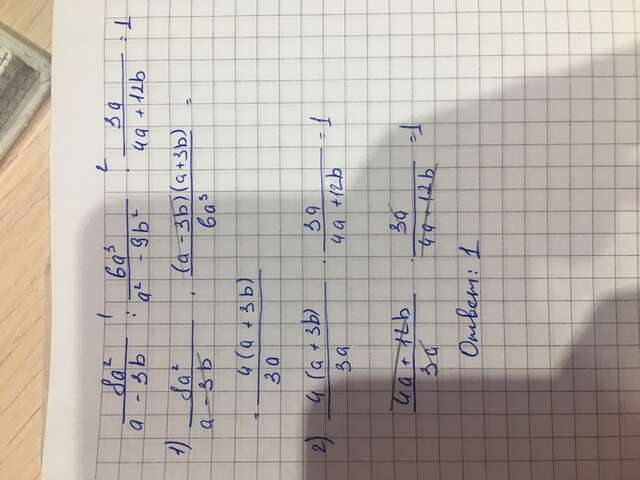 8a² / (a - 3b) : 6a³ / (a² - 9b²) · 3a / (4a + 12b) = 1
1) 8a² / (a - 3b) · (a - 3b)(a + 3b) / 6a³ =
= 4(a + 3b) / 3a
2) 4(a + 3b) / 3a · 3a / (4a + 12b) = 1
(4a + 12b) / 3a · 3a / (4a + 12b) = 1
Ответ: 1